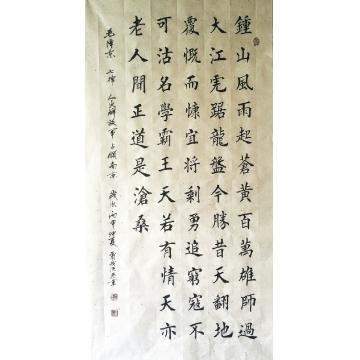 鍾山風雨起蒼黃百萬雄師過
大江虎踞龍盤今勝昔天翻地
覆慨而慷宜將剩勇追窮寇不
可沽名學霸王天若有情天亦
老人間正道是滄桑
毛澤東 七律 人民解放軍占領南京 歲次丙申仲夏